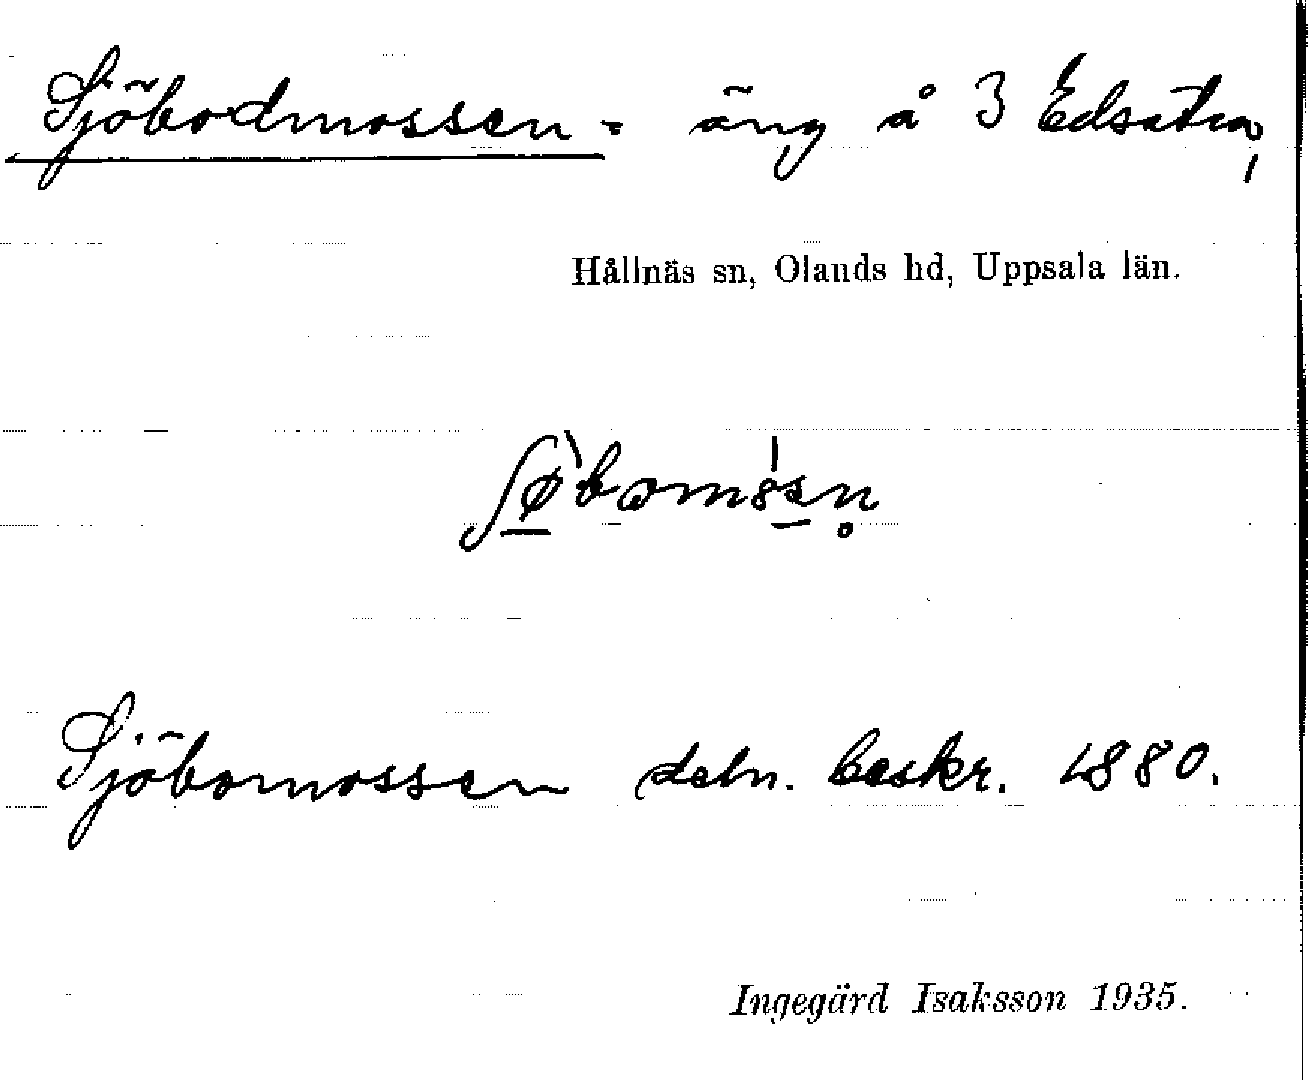 Sjöbodmossen = äng å 3 Edsätra,
Hållnäs sn, Olands hd, Uppsala län.
Sjöbomossen detn. beskr. 1880.
Ingegärd Isaksson 1935.